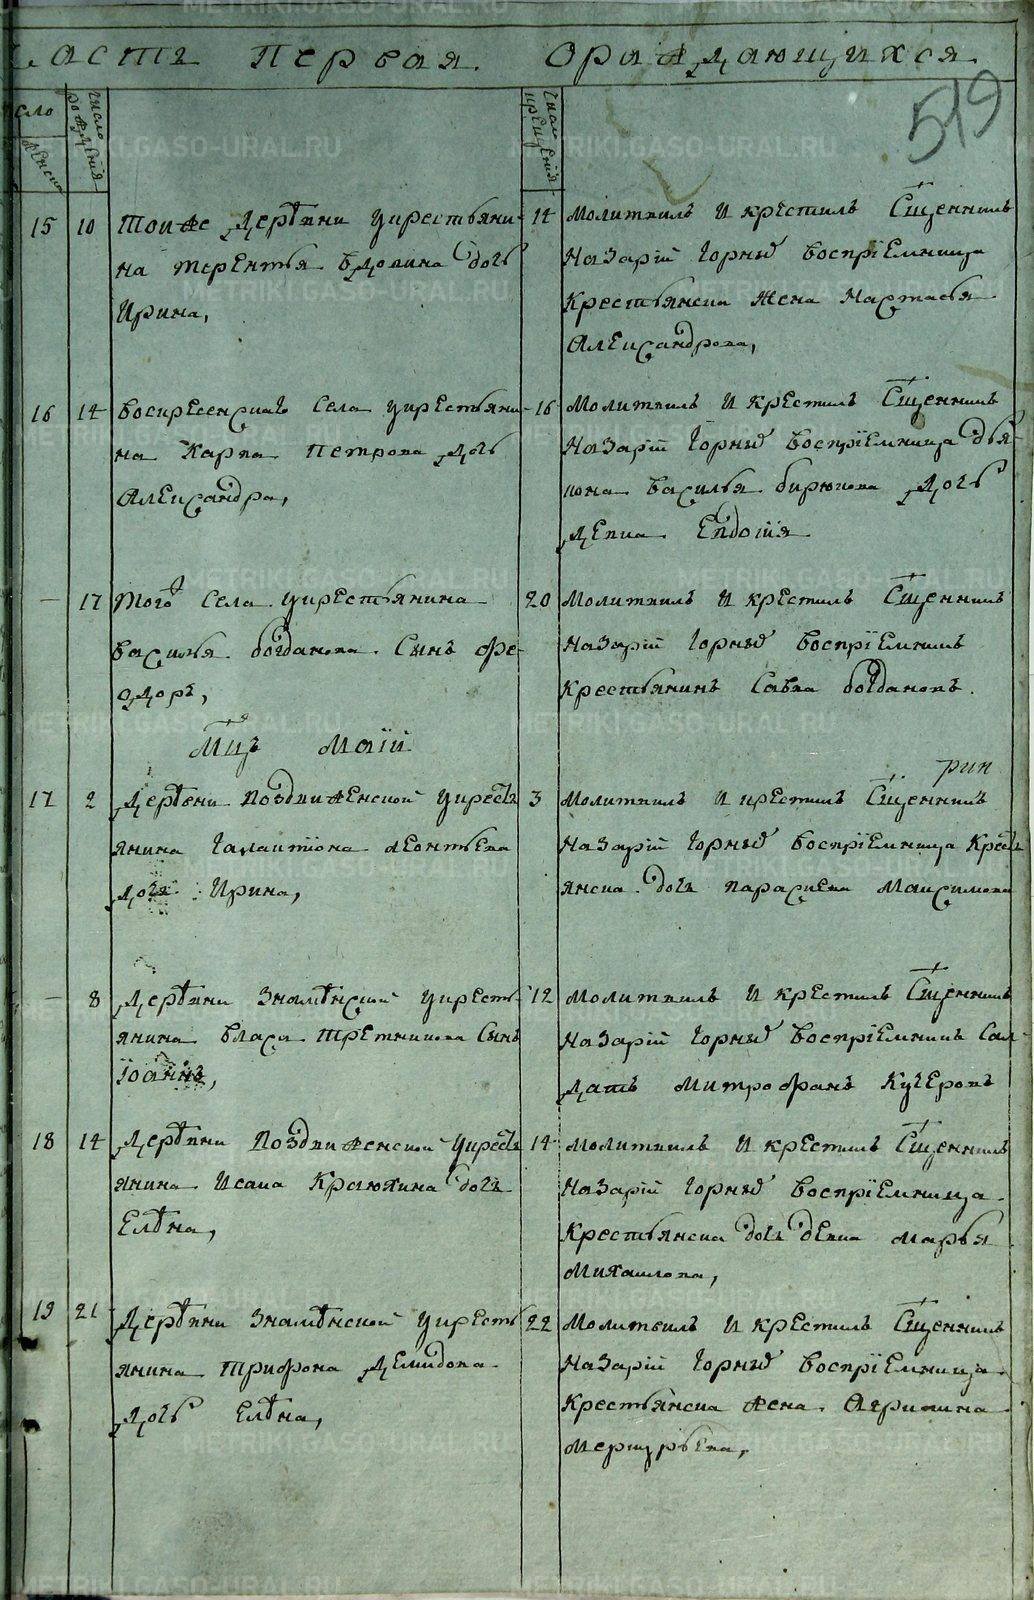 Часть Первая О раждающихся
519
число рожденія
число крещенія
женска
15 10 Тоиже Деревни укрестьяни-
на терентья Вдовина дочь
Ирина,
14 Молитвилъ И крестилъ Сщенникъ
Назарій Горныхъ воспріемница
крестьянска жена Настасья
Александрова,
16 14 Воскресенскаго Села укрестьяни-
на Карпа Петрова дочь
Александра,
16 Молитвилъ И крестилъ Сщенникъ
Назарій Горныхъ воспріемница дья-
кона Василья Бирюкова дочь
девка Евдокія
17 Тогожъ Села укрестьянина
Василья богданова Сынъ Фе-
одоръ,
20 Молитвилъ И крестилъ Сщенникъ
Назарій Горныхъ Воспріемникъ
крестьянинъ Савва богдановъ.
Мцъ Маій
17 2 Деревни Воздвиженской укресть
янина Галактіона Леонтьева
дочь Ирина,
рин
3 Молитвилъ И крестилъ Сщенникъ
Назарій Горныхъ воспріемница Кресть
янска дочь параскева Максимова
8 Деревни Знаменской укресть-
янина Власа Третникова Сынъ
Іоаннъ,
12 Молитвилъ И крестилъ Сщенникъ
Назарій Горныхъ Воспріемникъ Сал-
датъ Митрофанъ Кучеровъ
18 14 Деревни Воздвиженской укресть
янина Исака Крлюхина дочь
Елѣна,
14 Молитвилъ И крестилъ Сщенникъ
Назарій Горныхъ Воспріемница
крестьянска дочь девка марья
Михаилова,
19 21 Деревни Знаменской укресть
янина Трифона Демидова
дочь Елѣна,
22 Молитвилъ И крестилъ Сщенникъ
Назарій Горныхъ Воспріемница
крестьянска жена Акрипина
Меркурьева,
METRIKI.GASO-URAL.RU